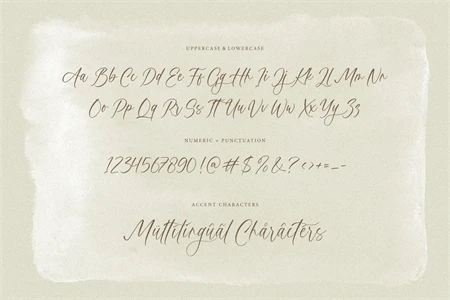 UPPERCASE & LOWERCASE
Aa Bb Cc Dd Ee Ff Gg Hh Ii Jj Kk Ll Mm Nn
Oo Pp Qq Rr Ss Tt Uu Vv Ww Xx Yy Zz
NUMERIC + PUNCTUATION
1234567890!@#$%&?<>+=_-
ACCENT CHARACTERS
Múltilingûâl Chârâctérs